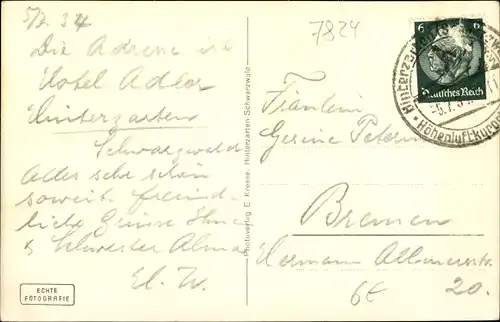 5/7. 34
Die Adresse ist
Hotel Adler
Hinterzarten
Schwarzwald
Alles sehr schön
soweit. freund-
liche Grüsse Ihnen
& Schwester Alma
El. W.
ECHTE
FOTOGRAFIE
Photoverlag E. Kresse, Hinterzarten-Schwarzwald
7824
6
Deutsches Reich
Hinterzarten
Höhenluftkurort
Fräulein
Gesine
Bremen
Hermann Allmersstr.
20.
6E